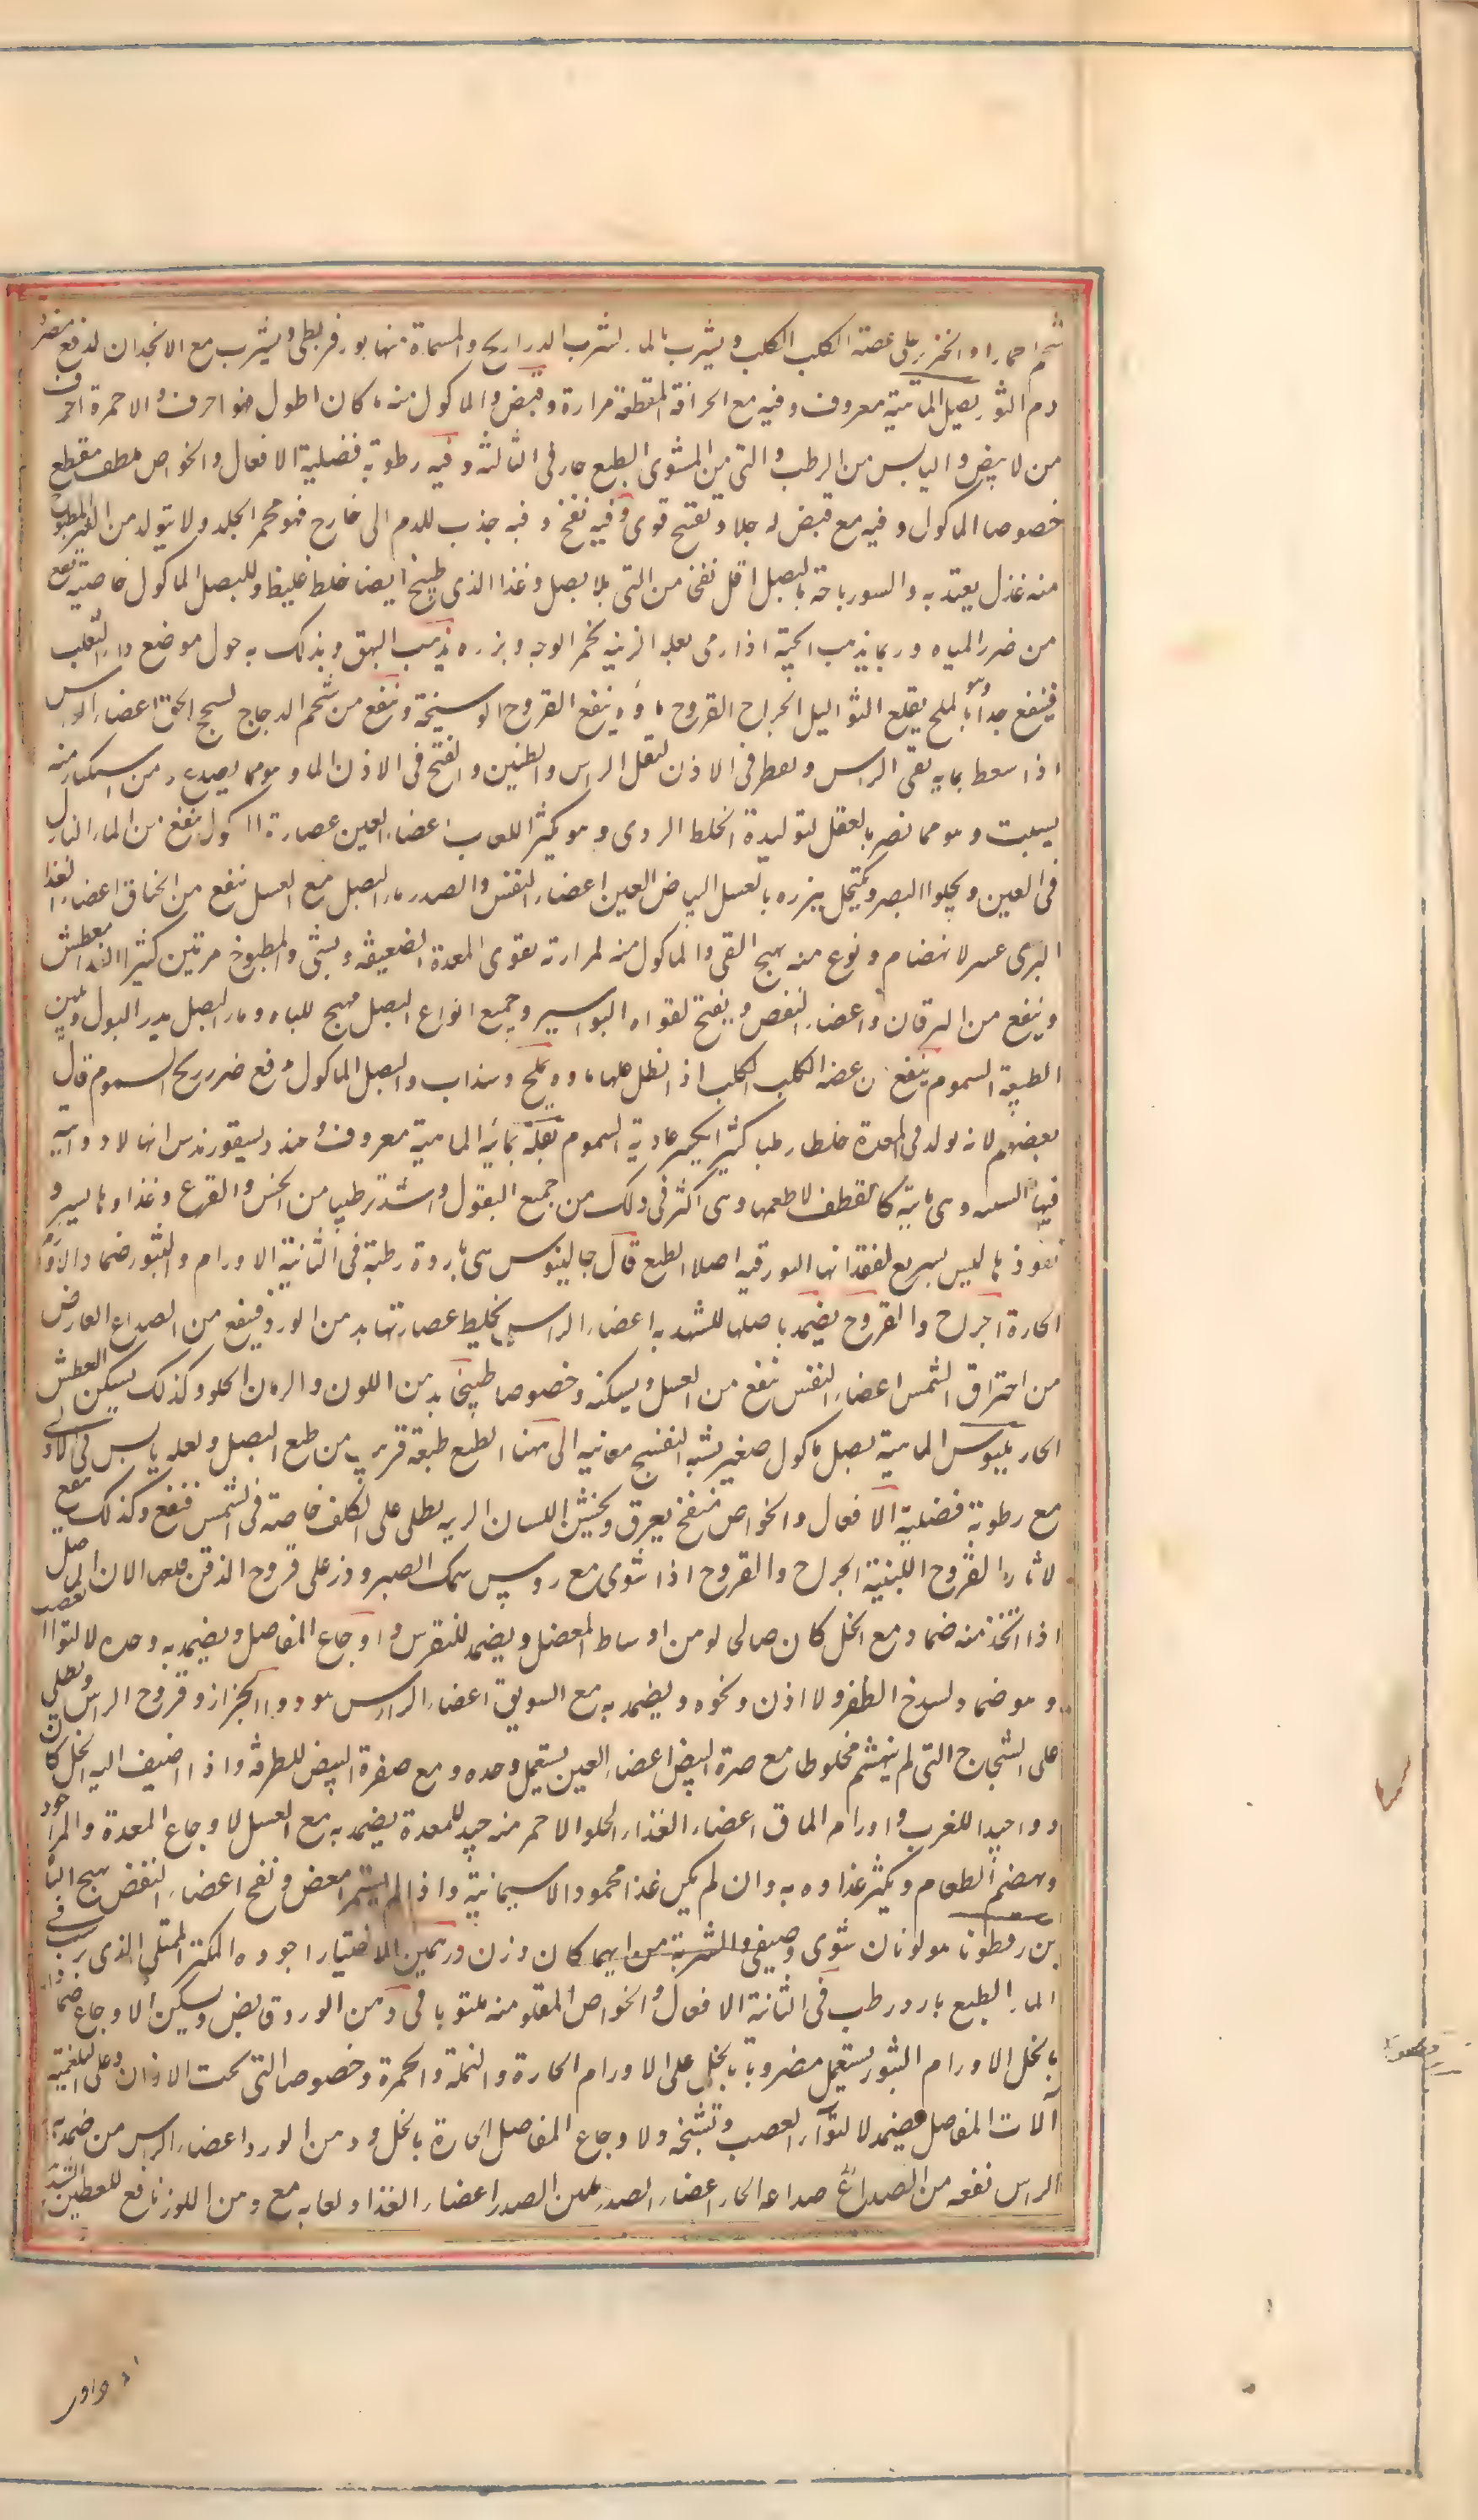 شحم احمار او الخنزير على عضة الكلب الكلب ويشرب بالماء لشرب الدراريح والمسماة منها بورقريطى ويشرب مع الانجدان لدفع مضرة
دم الثور بصل الماهية معروف وفيه مع الحرافة المقطعة مرارة وقبض والماكول منه ما كان اطول فهو احرف والاحمرة احرف
من لابيض واليابس من الرطب والتى من المشوى الطبع حار فى الثالثه وفيه رطوبة فضلية الافعال والخواص ملطف مقطع
خصوصا الماكول وفيه مع قبض له جلا وتفتح قوى وفيه نفخ وفيه جذب للدم الى خارج فهو محمر الجلد ولا يتولد من الغير المطبوخ
منه غذل يعتد به والسورباحة بالبصل اقل نفخا من التى بلا بصل وغذا الذى طبخ ايضا خلط غليظ وللبصل الماكول خاصية نفع
من ضرر المياه وربما يذهب الحية اذا رمى بعله الزينه يحمر الوجه وبزره يذهب البهق ويدلك به حول موضع داء الثعلب
فينفع جدا وهو بالملح يقلع الثواليل الجراح القروح ماؤه ينفع القروح الوسيخة وينفع من شحم الدجاج لسحج الخف اعضاء الراس
اذا سعط بمايه نقى الراس ويقطر فى الاذن لثقل الراس والطنين والفتح فى الاذن الماء وهو مما يصدع ومن استكثار منه
يسبت وهو مما نضر بالعقل لتوليدة الخلط الردى وهو يكثر اللعاب اعضاء العين عصارة الماكول ينفع من الماء النازل
فى العين ويجلوا البصر ويكتحل ببزره بالعسل لبياض العين اعضاء النفس والصدر ماء البصل مع العسل ينفع من الخناق اعضاء الغذا
البرى عسر لانهضام ونوع منه يهيج القى والماكول منه لمرارته يقوى المعدة الضعيفة ويشهى والمطبوخ مرتين كثير الغذا معطش
وينفع من اليرقان واعضاء النفض ويفتح لفواه البواسير وجميع انواع البصل مهيج للباه وماء البصل يدر البول ويلين
الطبيعة السموم ينفع من عضة الكلب الكلب اذا نطل عليها ماؤه وبملح وسذاب والبصل الماكول دفع ضرر ريح السموم قال
بعضهم لانه يولد فى المعدة خلطا رطبا كثيرا يكسر عادية السموم بقلة يمانية الماهية معروف عند ديسقوريدس انها لا دوائية
فيها البتة وهى مائية كالقطف لا طعم لها وهى اكثر فى ذلك من جميع البقول واشد ترطيبا من الخس والقرع وغذاوها يسير و
نفوذها ليس بسريع لفقدانها البورقيه اصلا الطبع قال جالينوس هى باردة رطبة فى الثانية الاورام والبثور ضماد الاورام
الحارة الجراح والقروح يضمد باصلها للشهدية اعضاء الراس يخلط عصارتها بدهن الورد فينفع من الصداع العارض
من احتراق الشمس اعضاء النفس ينفع من السعل ويسكنه وخصوصا طبيخا بدهن اللوز والرمان الحلو وكذلك يسكن العطش
الحار بلبوس الماهية بصل ماكول صغير يشبه البنفسج معانيه الى مهنا الطبع طبعة قريب من طبع البصل ولعله يابس فى الاولى
مع رطوبة فضلية الافعال والخواص منفخ يعرق ويخشن اللسان الزينه يطلى على الكلف خاصة فى الشمس فنفع وكذلك ينفع
لاثار القروح اللبنية الجراح والقروح اذا شوى مع روس سمك الصير وذر على قروح الذقن قلعها الات المفاصل
اذا اتخذ منه ضماد مع الخل كان صالحا لوهن اوساط العضل ويضمد للنقرس واوجاع المفاصل ويضمد به وحده لالتواء العصب
وهو ضماد لسدخ الظفر ولاذن ونحوه ويضمد به مع السويق اعضاء الراس هو دواء الحزاز وقروح الراس ويطلى
على الشجاج التى لم ينهشم مخلوطا مع صفرة البيض اعضاء العين يستعمل وحده ومع صفرة البيض للطرفة واذا اضيف اليه الخل كان
دواء جيدا للغرب واورام الماق اعضاء الغذاء الحلو الاحمر منه جيد للمعدة يضمد به مع العسل لاوجاع المعدة والمر اجود
ويهضم الطعام ويكثر غذاوه به وان لم يكن غذا محمودا لاسيمانيه واذا لم يستمرا امعض ونفخ اعضاء النفض يهيج الباه
بزرقطونا هو لونان شتوى وصيفى والشربة من ايهما كان وزن درهمين الاختيار اجوده المكتنز الممتلى الذى يرسب فى
الماء الطبع بارد رطب فى الثانة الافعال والخواص المقلو منه ملتوبا فى دهن الورد قابض ويسكين الاوجاع ضمادا
بالخل الاورام البثور يستعمل مضروبا بالخل على الاورام الحارة والنملة والحمرة وخصوصا التى تحت الاذان وعلى البلغمية
آلات المفاصل ضمد لالتواء العصب وتشنجه ولاوجاع المفاصل الحارة بالخل ودهن الورد اعضاء الراس من ضمد به
الراس نفعه من الصداع صداعه الحار اعضاء الصدر يلين الصدر اعضاء الغذا ولعابه مع دهن اللوز نافع للعطش الشديد